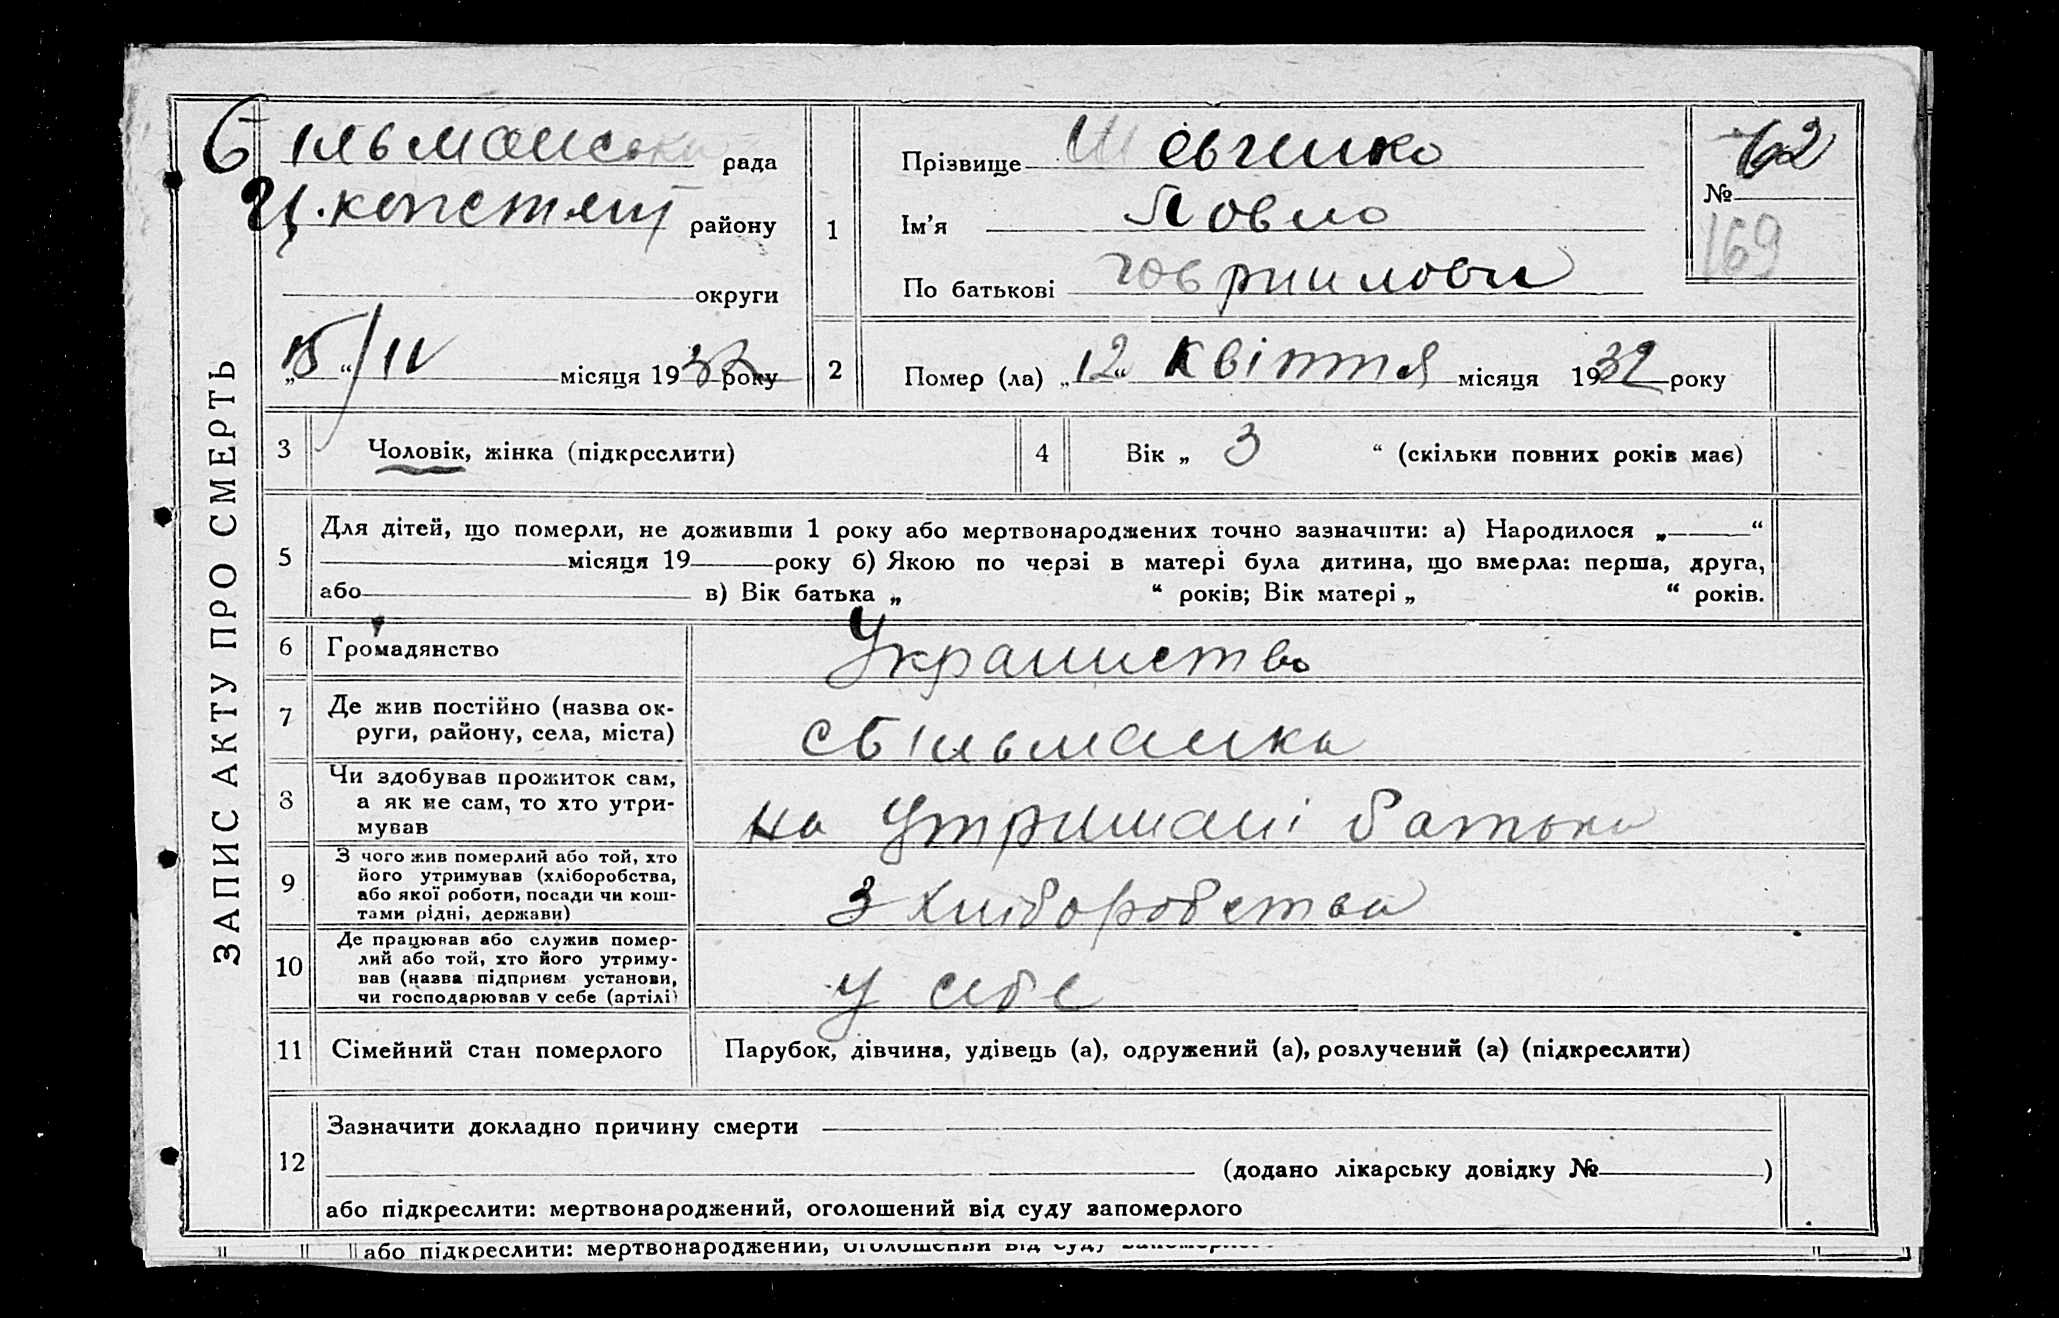 ЗАПИС АКТУ ПРО СМЕРТЬ
Більманська рада
Ц.констянт району
округи
„15“/IV місяця 1932 року
1
Прізвище Шевченко
Ім'я Павло
По батькові Гаврилови
№ 62
169
2
Помер (ла) „12“ Квіття місяця 1932 року
3
Чоловік, жінка (підкреслити)
4
Вік „ 3 “ (скільки повних років має)
5
Для дітей, що померли, не доживши 1 року або мертвонароджених точно зазначити: а) Народилося „ “
місяця 19 року б) Якою по черзі в матері була дитина, що вмерла: перша, друга,
або в) Вік батька „ “ років; Вік матері „ “ років.
6
Громадянство
7
Де жив постійно (назва ок-
руги, району, села, міста)
с Більманка
8
Чи здобував прожиток сам,
а як не сам, то хто утри-
мував
на утримані батька
9
З чого жив померлий або той, хто
його утримував (хліборобства,
або якої роботи, посади чи кош-
тами рідні, держави)
З хліборобства
10
Де працював або служив помер-
лий або той, хто його утриму-
вав (назва підприєм установи,
чи господарював у себе (артілі)
у себе
11
Сімейний стан померлого
Парубок, дівчина, удівець (а), одружений (а), розлучений (а) (підкреслити)
12
Зазначити докладно причину смерти
(додано лікарську довідку № )
або підкреслити: мертвонароджений, оголошений від суду запомерлого
або підкреслити: мертвонароджений, оголошений від суду